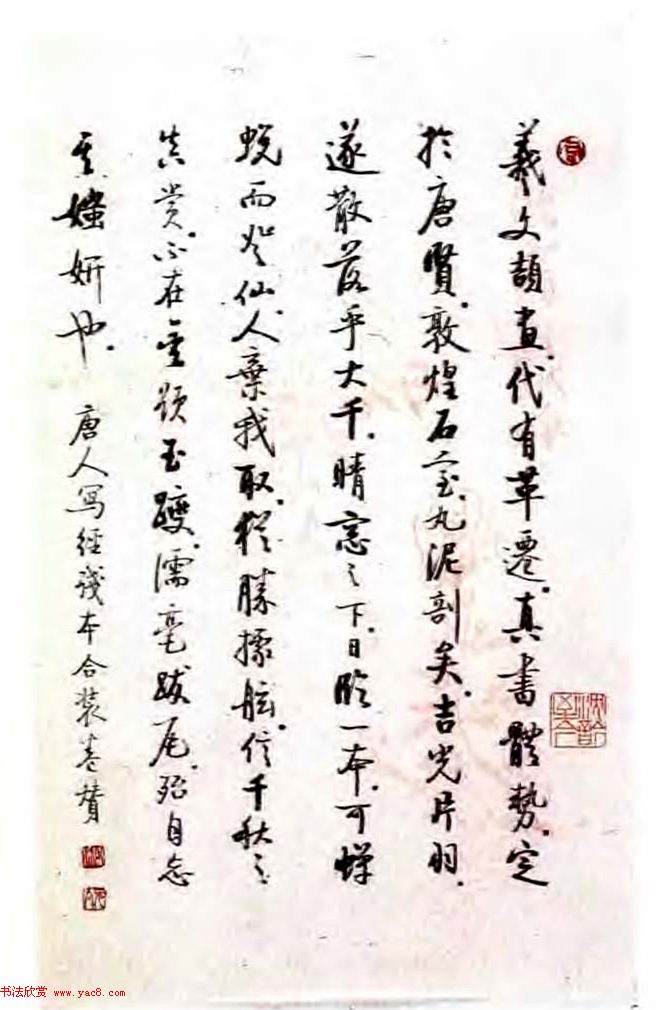 羲文頡畫代有革遷真書體勢定
於唐賢敦煌石室丸泥剖矣吉光片羽
遂散落乎大千晴窗之下日臨一本可蟬
蛻而登仙人棄我取猶勝據舷信千秋之
真賞不在金題玉躞濡毫跋尾殆自忘
其媸妍也
唐人寫經殘本合裝卷贊
书法欣赏 www.yac8.com